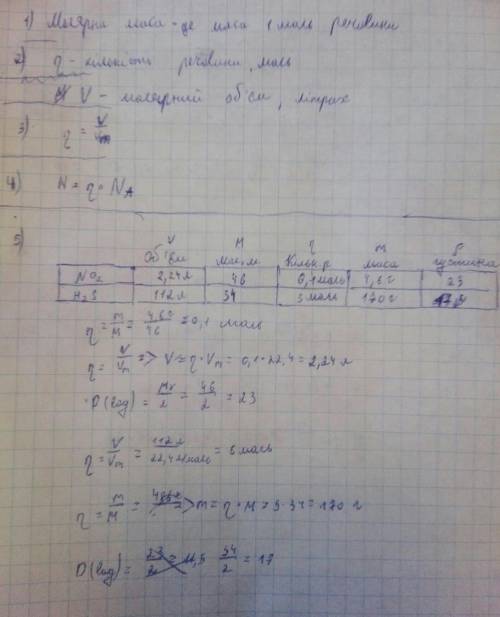 1) Молярна маса - це маса 1 моль речовини
2) η - кількість речовини, моль
V - молярний об'єм, літрах
3) η = V/Vm
4) N = η · NA
5)
V M η m ρ
Об'єм мол.м Кільк.р маса густина
NO2 2,24л 46 0,1моль 4,6г 23
H2S 112л 34 5моль 170г
η = m/M = 4,6г/46 = 0,1 моль
η = V/Vm => V = η · Vm = 0,1 · 22,4 = 2,24 л
D(вод) = Mr/2 = 46/2 = 23
η = V/Vm = 112л/22,4л/моль = 5моль
η = m/M => m = η · M = 5 · 34 = 170 г
D(вод) = 34/2 = 17